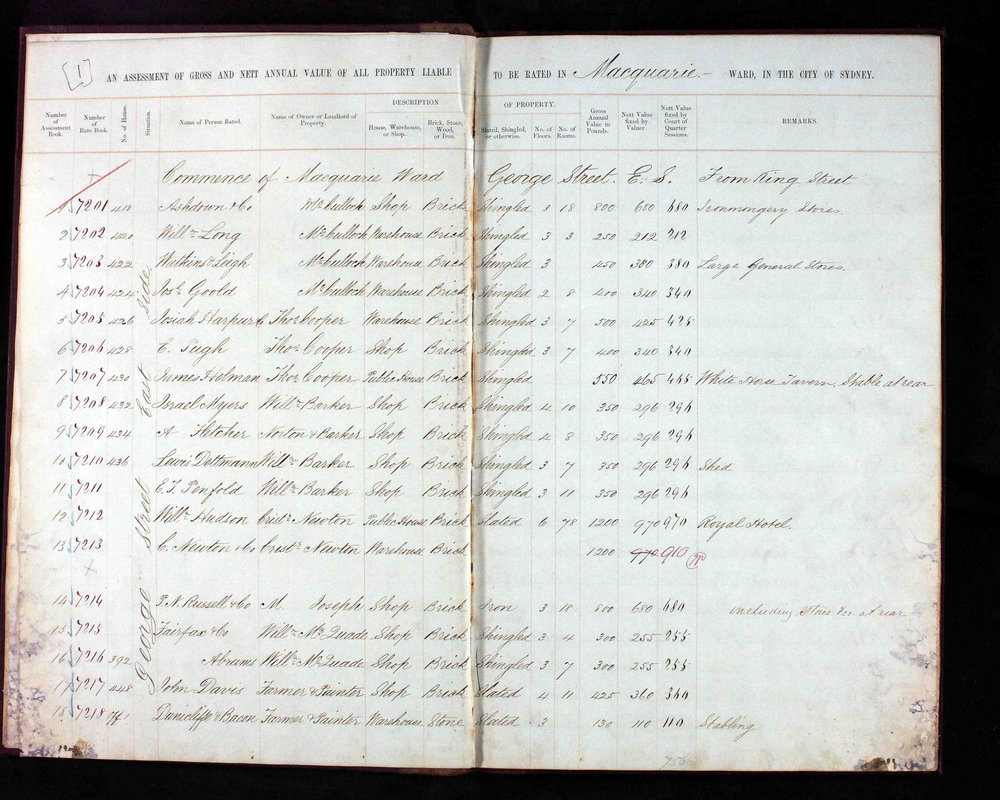 [1]
AN ASSESSMENT OF GROSS AND NETT ANNUAL VALUE OF ALL PROPERTY LIABLE TO BE RATED IN Macquarie WARD, IN THE CITY OF SYDNEY.
DESCRIPTION OF PROPERTY.
Number of Assessment Book. Number of Rate Book. No. of House. Situation. Name of Person Rated. Name of Owner or Landlord of Property. House, Warehouse, or Shop. Brick, Stone, Wood, or Iron. Slated, Shingled, or otherwise. No. of Floors. No. of Rooms. Gross Annual Value in Pounds. Nett Value fixed by Valuer. Nett Value fixed by Court of Quarter Sessions. REMARKS.
Commence of Macquarie Ward George Street. E. S. From King Street
George Street East Side
7201 418 Ashdown & Co McCulloch Shop Brick Shingled 3 18 800 680 680 Ironmongery Stores
2 7202 420 Willm Long McCulloch Warehouse Brick Shingled 3 3 250 212 212
3 7203 422 Watkins & Leigh McCulloch Warehouse Brick Shingled 3 450 380 380 Large General Stores.
4 7204 424 Josh Goold McCulloch Warehouse Brick Shingled 2 8 400 340 340
5 7205 426 Josiah Harpur & Co Thos Cooper Warehouse Brick Shingled 3 7 500 425 425
6 7206 428 E. Pugh Thos Cooper Shop Brick Shingled 3 7 400 340 340
7 7207 430 James Holman Thos Cooper Public House Brick Shingled 550 465 465 White Horse Tavern. Stable at rear
8 7208 432 Israel Myers Willm Barker Shop Brick Shingled 4 10 350 296 296
9 7209 434 A Fletcher Norton & Barker Shop Brick Shingled 4 8 350 296 296
10 7210 436 Lewis Dettmann Willm Barker Shop Brick Shingled 3 7 350 296 296 Shed
11 7211 E. T. Penfold Willm Barker Shop Brick Shingled 3 11 350 296 296
12 7212 Willm Hudson Cristr Newton Public House Brick Slated 6 78 1200 970 970 Royal Hotel.
13 7213 C. Newton & Co Cristr Newton Warehouse Brick 1200 970 910
14 7214 P. N. Russell & Co M. Joseph Shop Brick Iron 3 18 800 680 680 including Stores &c at rear
15 7215 Fairfax & Co Willm McQuade Shop Brick Shingled 3 4 300 255 255
16 7216 392 Abrams Willm McQuade Shop Brick Shingled 3 7 300 255 255
17 7217 448 John Davis Farmer & Painter Shop Brick Slated 4 11 425 360 360
18 7218 Dunicliffe & Bacon Farmer & Painter Warehouse Stone Slated 3 130 110 110 Stabling